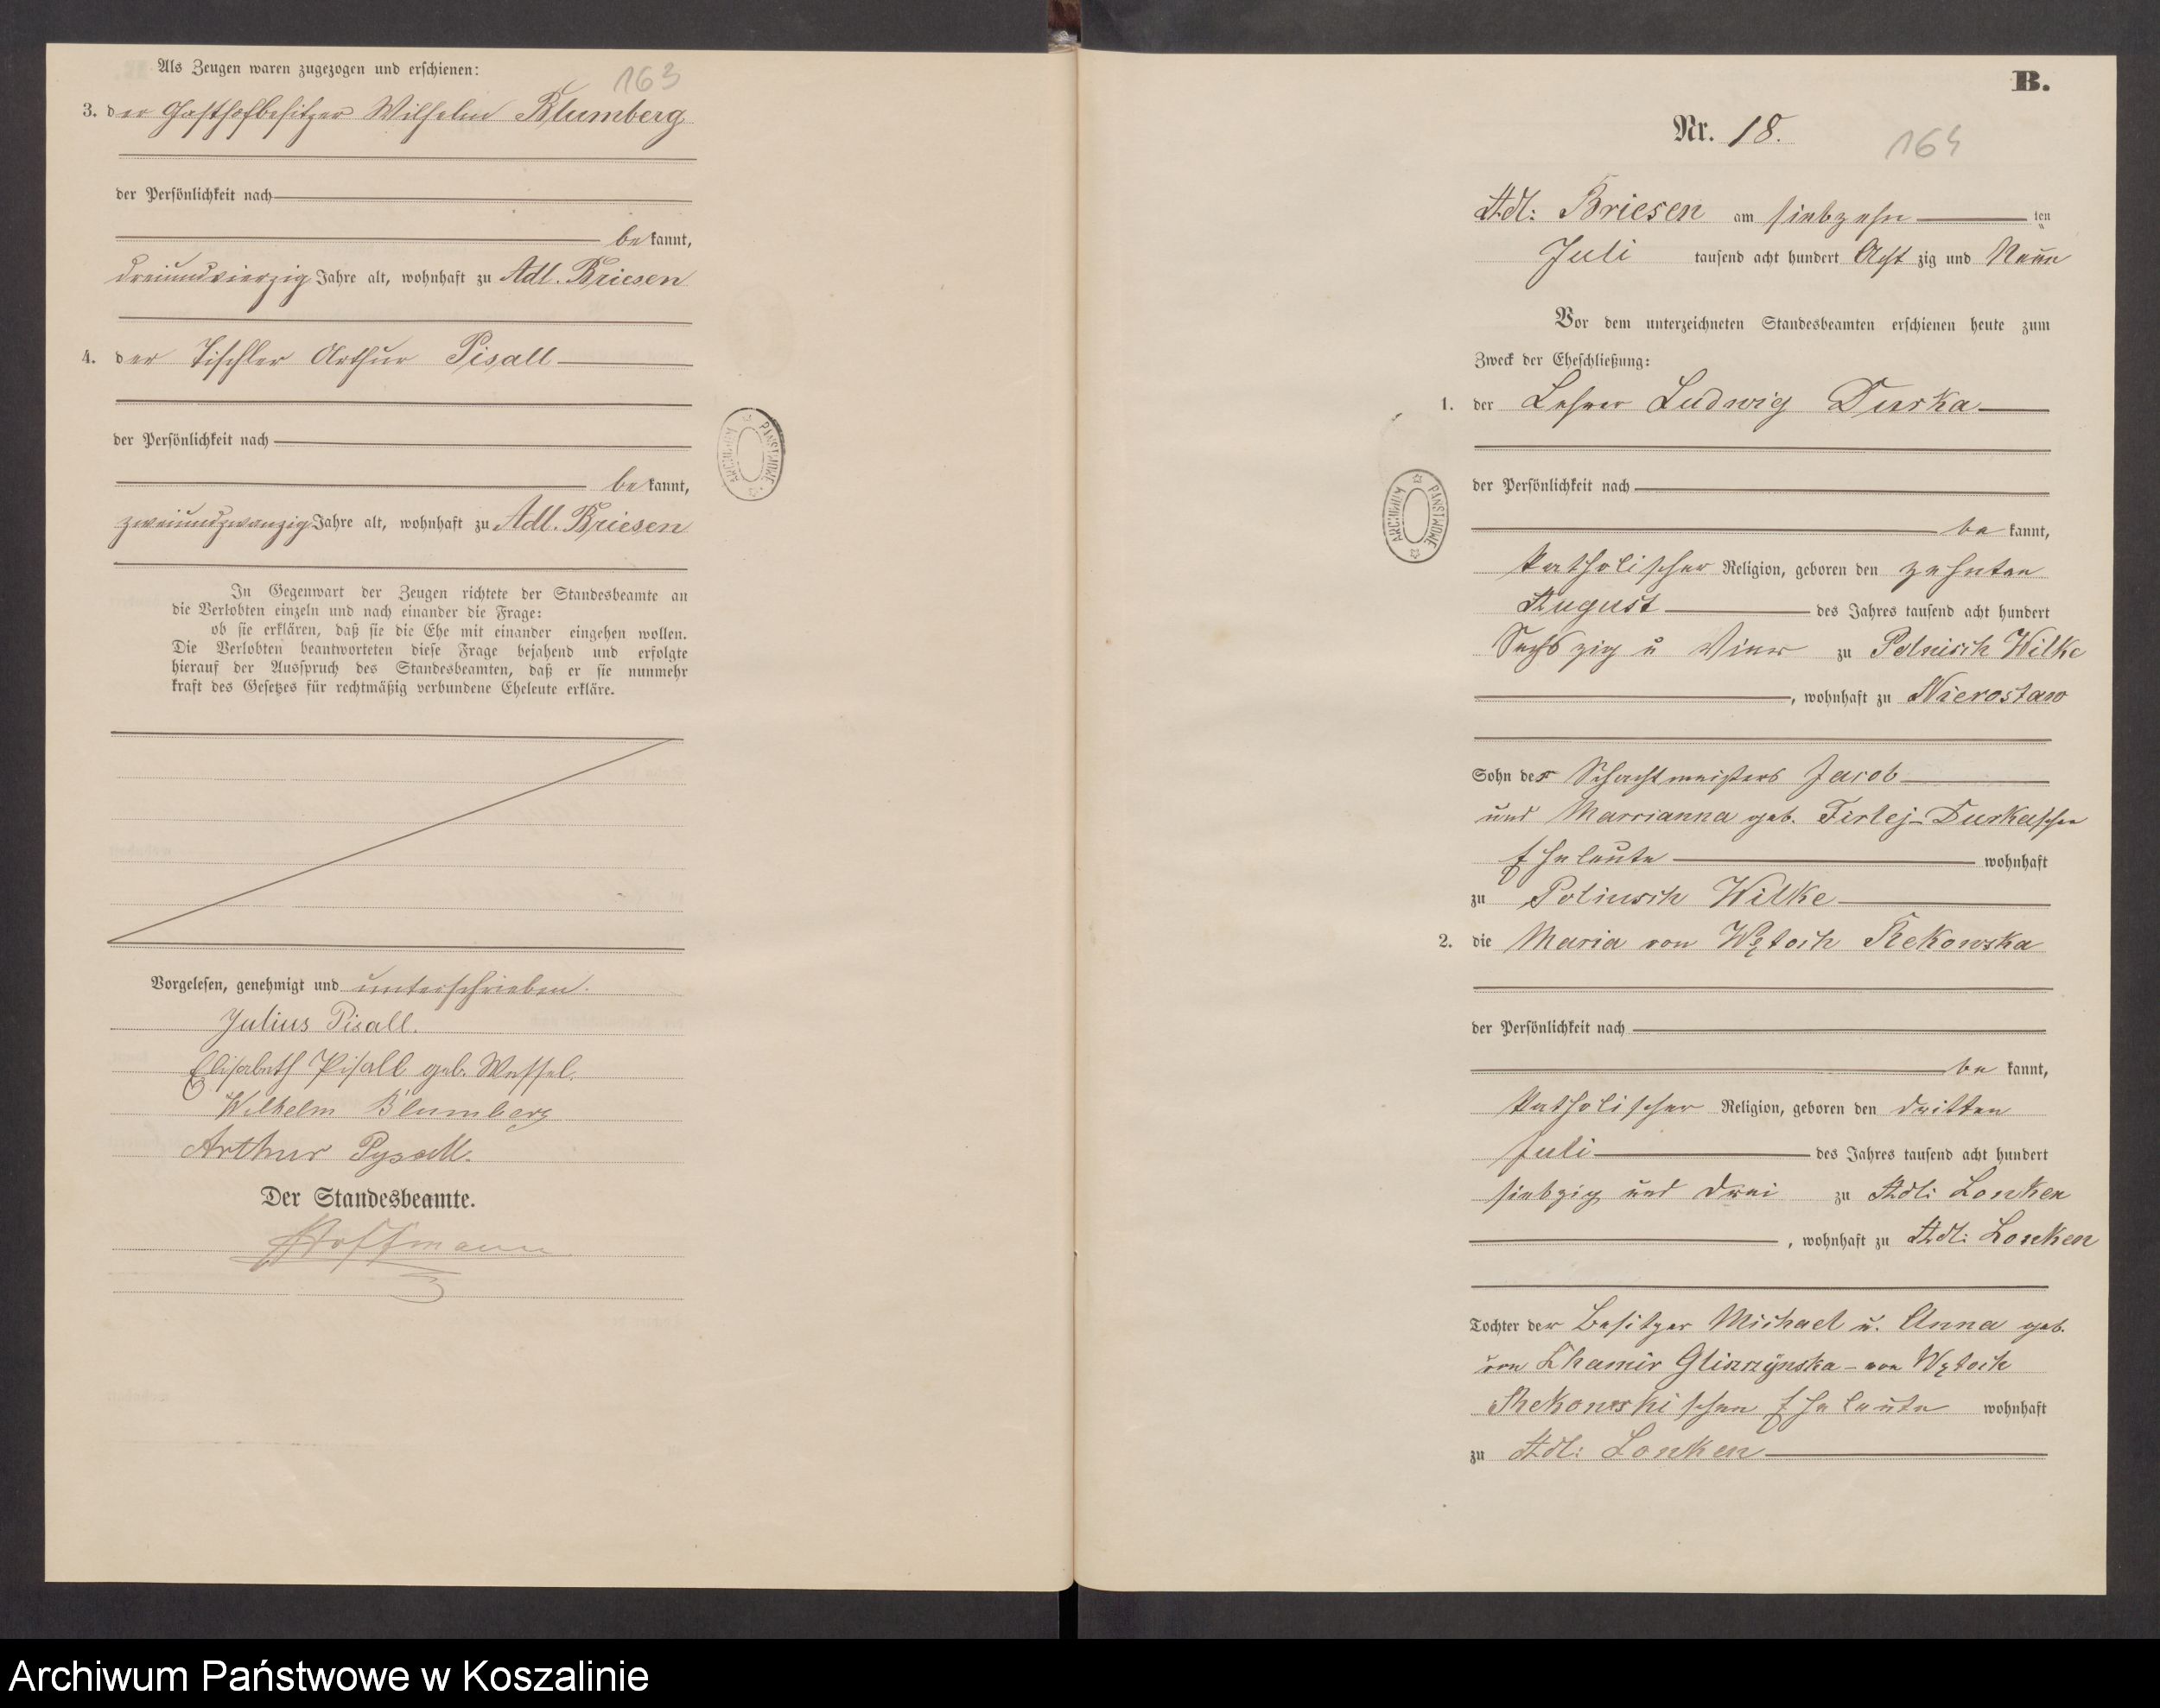 Als Zeugen waren zugezogen und erschienen:
163
3. der Gasthofbesitzer Wilhelm Blumberg
der Persönlichkeit nach
bekannt,
dreiundvierzig Jahre alt, wohnhaft zu Adl. Briesen
4. der Tischler Arthur Pisall
der Persönlichkeit nach
bekannt,
zweiundzwanzig Jahre alt, wohnhaft zu Adl. Briesen
In Gegenwart der Zeugen richtete der Standesbeamte an
die Verlobten einzeln und nach einander die Frage:
ob sie erklären, daß sie die Ehe mit einander eingehen wollen.
Die Verlobten beantworteten diese Frage bejahend und erfolgte
hierauf der Ausspruch des Standesbeamten, daß er sie nunmehr
kraft des Gesetzes für rechtmäßig verbundene Eheleute erkläre.
Vorgelesen, genehmigt und unterschrieben.
Julius Pisall.
Elisabeth Pisall geb. Wessel.
Wilhelm Blumberg
Arthur Pysall.
Der Standesbeamte.
Hoffmann
ARCHIWUM PAŃSTWOWE
B.
Nr. 18.
164
Adl: Briesen am siebzehn ten
Juli tausend acht hundert Acht zig und Neun
Vor dem unterzeichneten Standesbeamten erschienen heute zum
Zweck der Eheschließung:
1. der Lehrer Ludwig Durka
der Persönlichkeit nach
be kannt,
katholischer Religion, geboren den zehnten
August des Jahres tausend acht hundert
Sechs zig u Vier zu Polnisch Wilke
, wohnhaft zu Nierostaw
Sohn der Schachtmeisters Jacob
und Marrianna geb. Firlej-Durkaschen
Eheleute wohnhaft
zu Polnisch Wilke
2. die Maria von Wętoch Rekowska
der Persönlichkeit nach
be kannt,
katholischer Religion, geboren den dritten
Juli des Jahres tausend acht hundert
siebzig und drei zu Adl: Lonken
, wohnhaft zu Adl: Lonken
Tochter der Besitzer Michael u. Anna geb.
von Chamir Gliszczynska - von Wętoch
Rekowskischen Eheleute wohnhaft
zu Adl: Lonken
ARCHIWUM PAŃSTWOWE
Archiwum Państwowe w Koszalinie